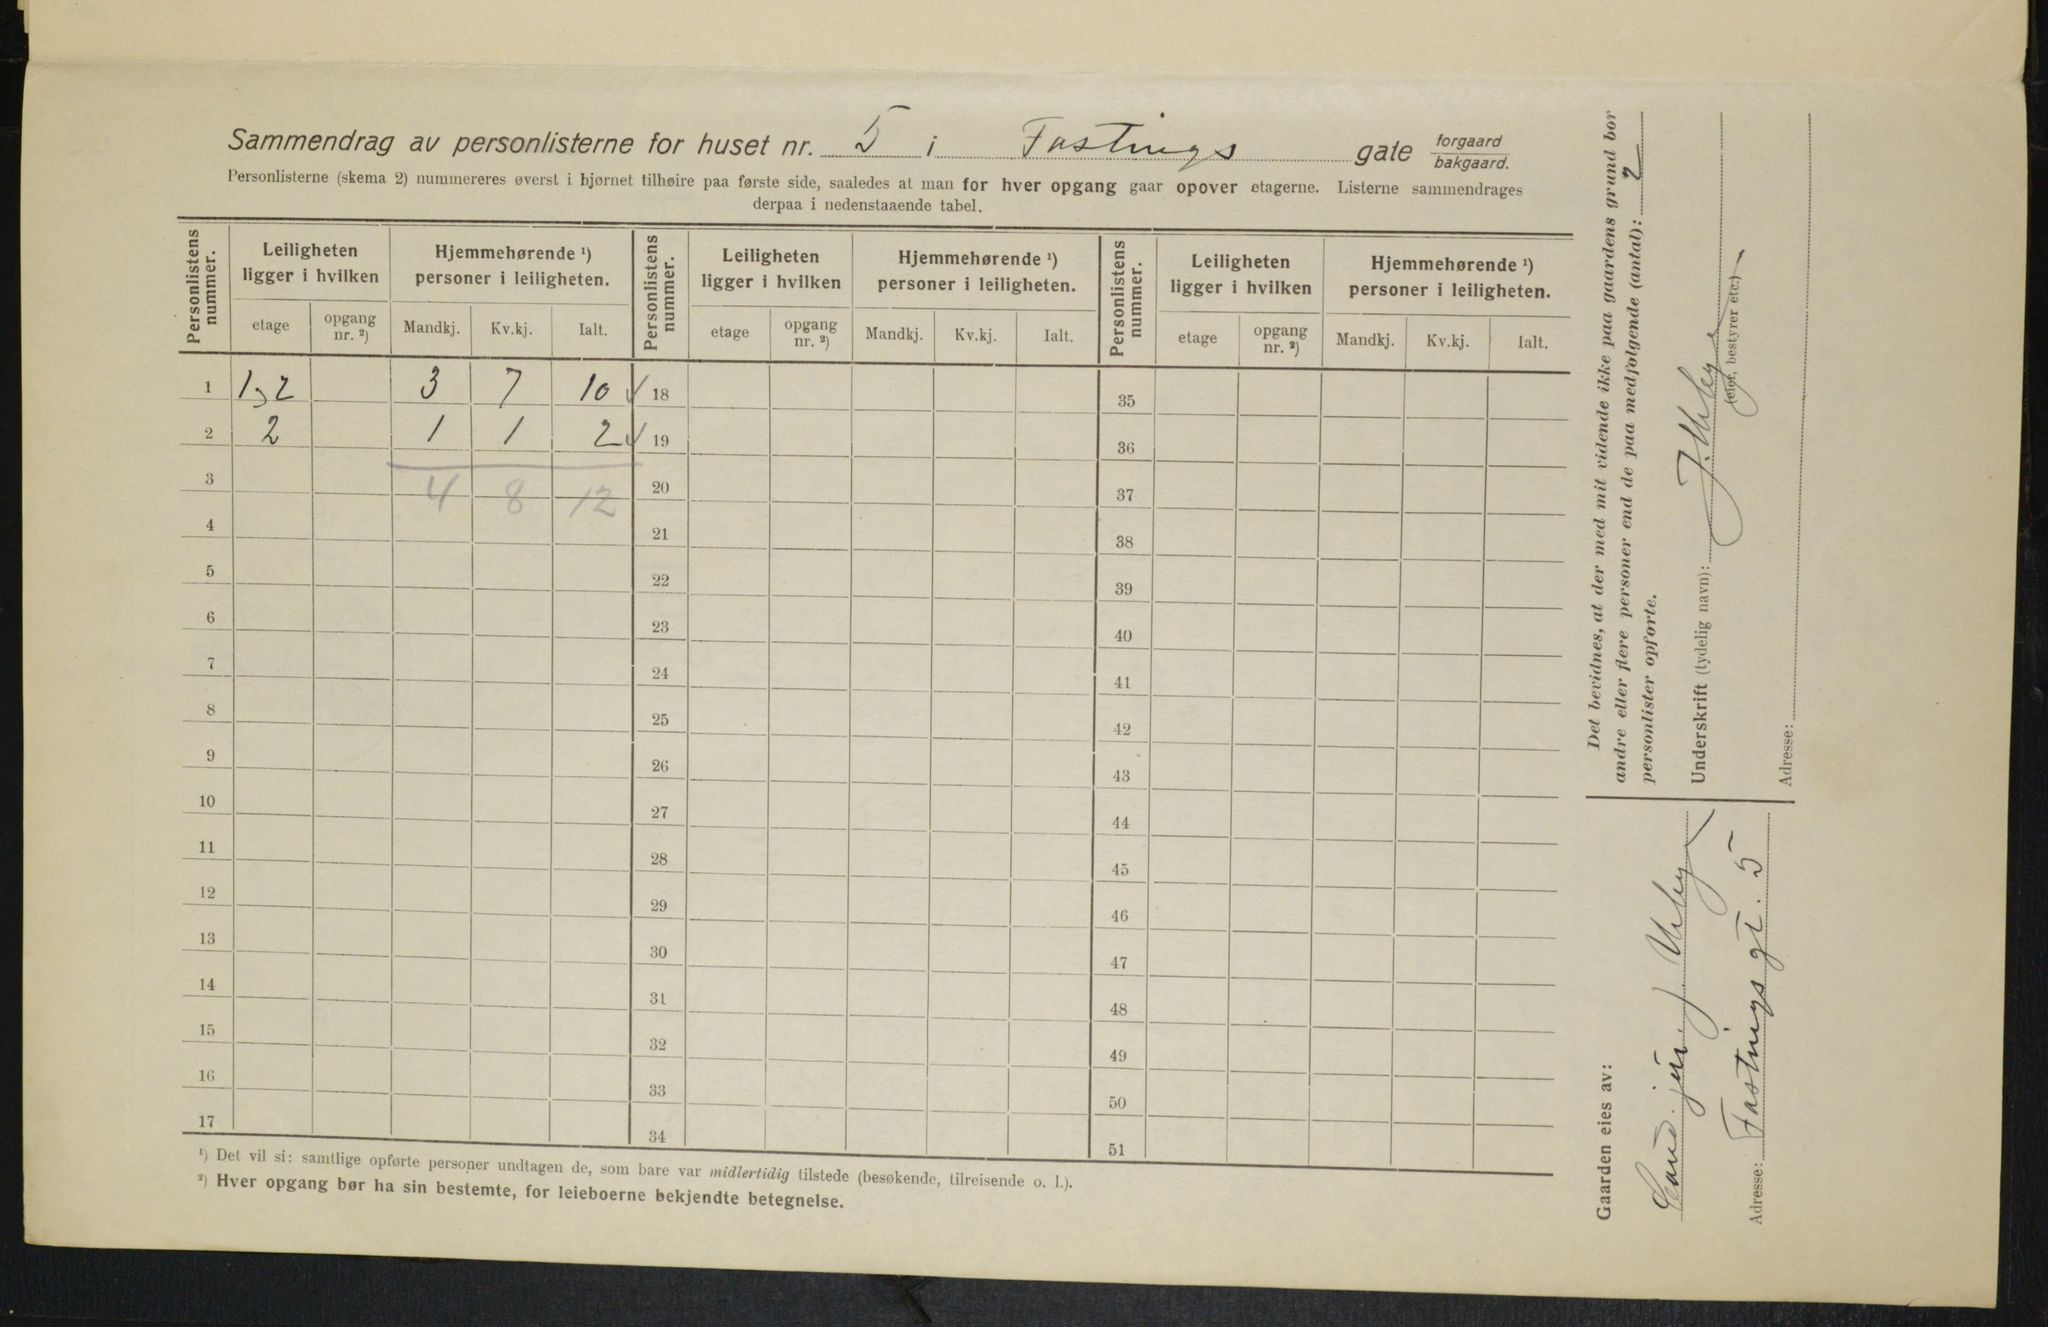 Sammendrag av personlisterne for huset nr. 5 i Fastings gate forgaard bakgaard.
Personlisterne (skema 2) nummereres øverst i hjørnet tilhøire paa første side, saaledes at man for hver opgang gaar opover etagerne. Listerne sammendrages
derpaa i nedenstaaende tabel.
Personlistens nummer. Leiligheten ligger i hvilken Hjemmehørende ¹) personer i leiligheten. Personlistens nummer. Leiligheten ligger i hvilken Hjemmehørende ¹) personer i leiligheten. Personlistens nummer. Leiligheten ligger i hvilken Hjemmehørende ¹) personer i leiligheten.
etage opgang nr. ²) Mandkj. Kv.kj. Ialt. etage opgang nr. ²) Mandkj. Kv.kj. Ialt. etage opgang nr. ²) Mandkj. Kv.kj. Ialt.
1 1 2 3 7 10 18 35
2 2 1 1 2 19 36
3 4 8 12 20 37
4 21 38
5 22 39
6 23 40
7 24 41
8 25 42
9 26 43
10 27 44
11 28 45
12 29 46
13 30 47
14 31 48
15 32 49
16 33 50
17 34 51
¹) Det vil si: samtlige opførte personer undtagen de, som bare var midlertidig tilstede (besøkende, tilreisende o. l.).
²) Hver opgang bør ha sin bestemte, for leieboerne bekjendte betegnelse.
Det bevidnes, at der med mit vidende ikke paa gaardens grund bor
andre eller flere personer end de paa medfølgende (antal): 2
personlister opførte.
Underskrift (tydelig navn): J.
(eier, bestyrer etc.)
Adresse:
Gaarden eies av:
Cand. jur. J.
Adresse: Fastings gt. 5